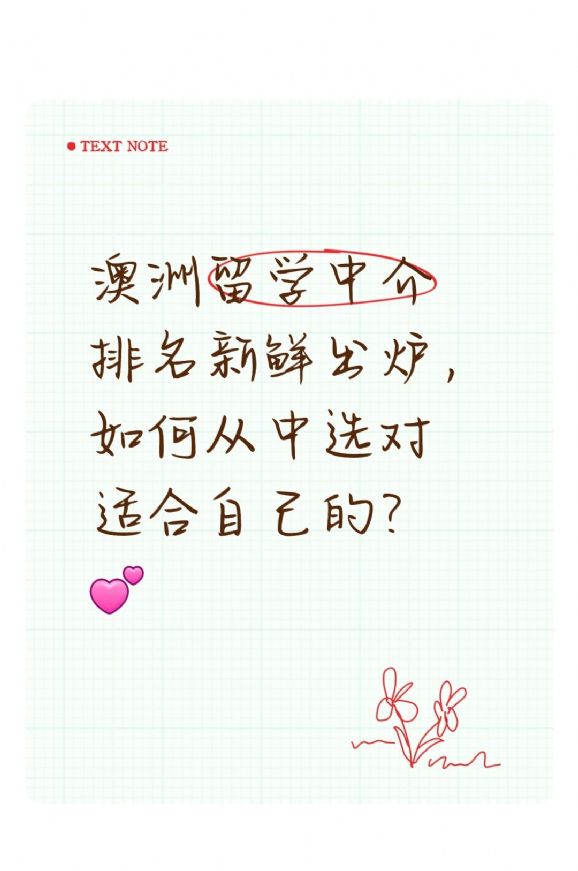 TEXT NOTE
澳洲留学中介
排名新鲜出炉，
如何从中选对
适合自己的？